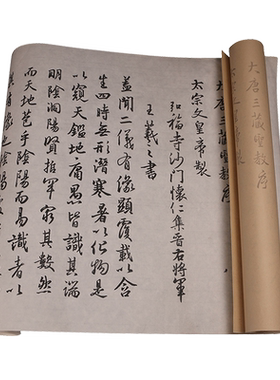 大唐三藏聖教序
太宗文皇帝製
弘福寺沙門懷仁集晉右將軍
王羲之書
蓋聞二儀有像顯覆載以含
生四時無形潛寒暑以化物是
以窺天鑑地庸愚皆識其端
明陰洞陽賢哲罕窮其數然
而天地苞乎陰陽而易識者以